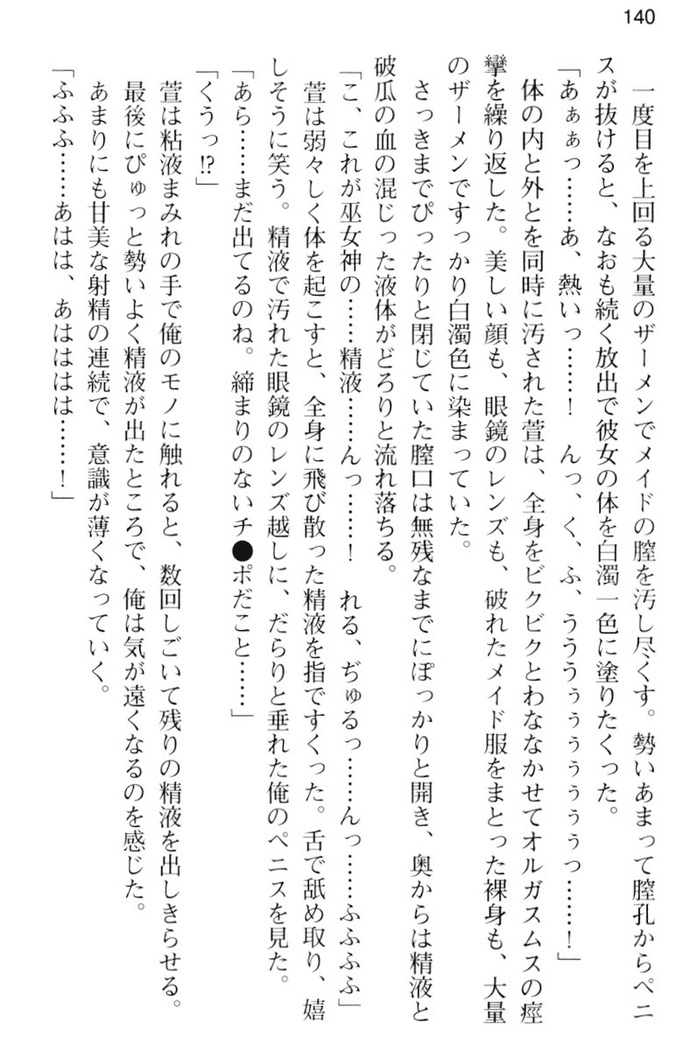 140
一度目を上回る大量のザーメンでメイドの膣を汚し尽くす。勢いあまって膣孔からペニ
スが抜けると、なおも続く放出で彼女の体を白濁一色に塗りたくった。
「あぁぁっ……あ、熱いっ……！　んっ、く、ふ、うううぅぅぅぅぅぅっ……！」
体の内と外とを同時に汚された萱は、全身をビクビクとわななかせてオルガスムスの痙
攣を繰り返した。美しい顔も、眼鏡のレンズも、破れたメイド服をまとった裸身も、大量
のザーメンですっかり白濁色に染まっていた。
さっきまでぴったりと閉じていた膣口は無残なまでにぽっかりと開き、奥からは精液と
破瓜の血の混じった液体がどろりと流れ落ちる。
「こ、これが巫女神の……精液……んっ……！　れる、ぢゅるっ……んっ……ふふふふ」
萱は弱々しく体を起こすと、全身に飛び散った精液を指ですくった。舌で舐め取り、嬉
しそうに笑う。精液で汚れた眼鏡のレンズ越しに、だらりと垂れた俺のペニスを見た。
「あら……まだ出てるのね。締まりのないチ●ポだこと……」
「くうっ!?」
萱は粘液まみれの手で俺のモノに触れると、数回しごいて残りの精液を出しきらせる。
最後にぴゅっと勢いよく精液が出たところで、俺は気が遠くなるのを感じた。
あまりにも甘美な射精の連続で、意識が薄くなっていく。
「ふふふ……あはは、あはははは……！」